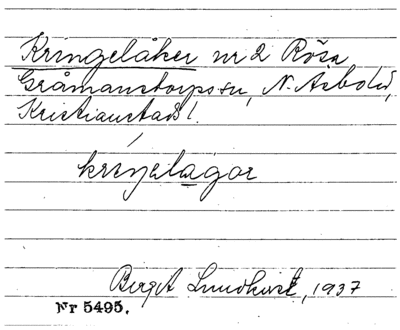 Kringelåker nr 2 Rösa
Gråmanstorps sn, N. Åsbohd,
Kristianstads l.
kriŋelagor
Birgit Lundkvist, 1937
Nr 5495.